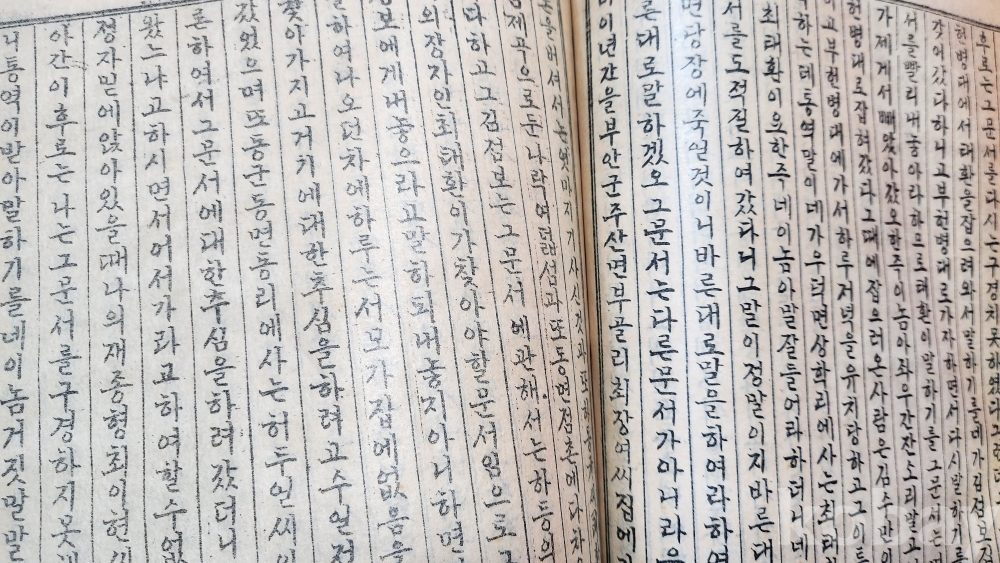 후로는그문서를다시는구경치못하였다그런
헌병대에서태환을잡으려와서말하기를네가김점보
갔어갔다하니고부헌병대로가자하면서다시말하기를
서를빨리내놓아라하므로태환이말하기를그문서는
가제게서빼았아갔오한즉이놈아좌우간잔소리말고
헌병대로잡혀갔다그때에잡으러온사람은김수만이
고부헌병대에가서하루저녁을유치당하고그이튿
하는데통역말이네가우덕면상학리에사는최태
최태환이오한즉네이놈아말잘들어라하더니네
서를도적질하여갔다니그말이정말이지바른대
면당장에죽일것이니바른대로말을하여라하여
른대로말하겠오그문서는다른문서가아니라
이이년간을부안군주산면부골리최장여씨집에
제곡으로둔나락여덟섬과또동면점촌에다차
다하고그김점보는그문서에관해서는하등의
의장자인최태환이가찾아야할문서임으로
점보에게내놓으라고말하되내놓지아니하면
하여나오던차에하루는서모가집에없음을
찾아가지고거기에대한추심을하려고수원정
갔었으며또동군동면통리에사는허두언씨
론하여서그문서에대한추심을하려갔더니
왔느냐고하시면서어서가라고하여할수없
정자밑에앉아있을때나의재종형최이현씨
아간이후로는나는그문서를구경하지못
니통역이받아말하기를네이놈거짓말말